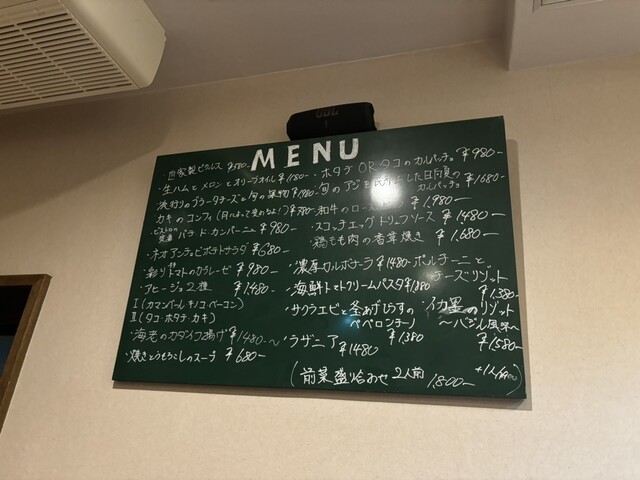 MENU
・自家製ピクルス ¥580-
・生ハムとメロンとオリーブオイル ¥1180-
ブラータチーズと旬の果物 ¥1980-
カキのコンフィ(月によって変わるよ!) ¥780-
ビストロの パテ・ド・カンパーニュ ¥980-
・ネオアンチョビポテトサラダ ¥680-
・彩りトマトのカプレーゼ ¥980-
・アヒージョ2種 ¥1.480-
Ⅰ(カマンベール・キノコ・ベーコン)
Ⅱ(タコ・ホタテ・カキ)
・海老のカダイフ揚げ ¥1480-~
・焼きとうもろこしのスープ ¥680-
・ホタテ OR タコのカルパッチョ ¥980-
旬のアジを した カルパッチョ ¥1680-
・和牛のロース ¥1.980-
・スコッチエッグトリュフソース ¥1480-
鶏もも肉の香草焼き ¥1.680-
・濃厚カルボナーラ ¥1480-
・海鮮トマトクリームパスタ ¥1880
・サクラエビと釜あげしらすの
ペペロンチーノ ¥1380
・ラザニア ¥1480
・ポルチーニと
チーズリゾット
¥1.380-
・イカ墨のリゾット
~バジル風味~
¥1580-
(前菜盛り合わせ 2人前 1.800- +1人/900)